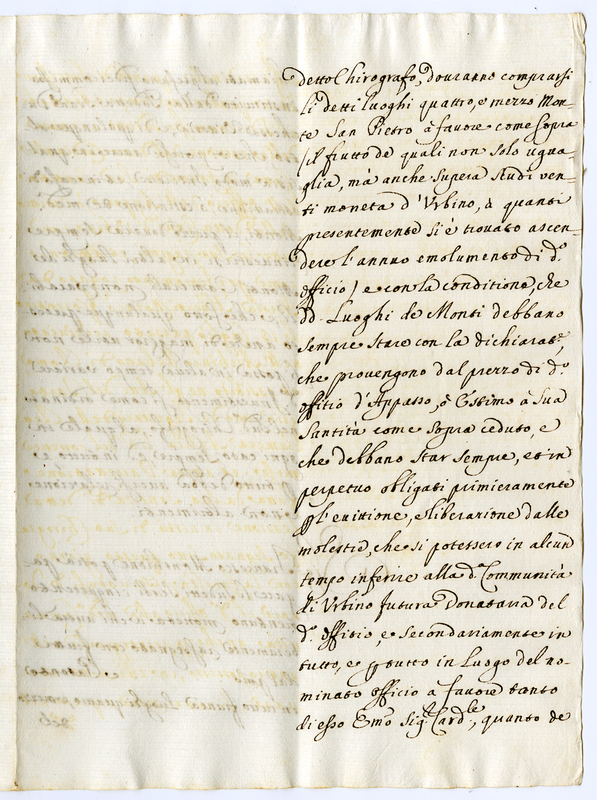 detto Chirografo, douranno comprarsi
li detti luoghi quattro, e mezzo Mon-
te San Pietro à fauore come sopra
(il frutto de quali non solo ugua-
glia, mà anche supera scudi ven-
ti moneta d'Vrbino, à quanti
presentemente si è trouato ascen-
dere l'annuo emolumento di d.º
officio) e con la conditione, che
dd. Luoghi de Monti debbano
sempre stare con la dichiarat.e,
che prouengono dal prezzo di d.º
offitio d'Appasso, ò Estimo à Sua
Santità come sopra ceduto, e
che debbano star sempre, et in
perpetuo obligati primieramente
p l'euittione, e liberazione dalle
molestie, che si potessero in alcun
tempo inferire alla d.ª Communità
di Vrbino futura Donataria del
d.º offitio, e secondariamente in
tutto, e p tutto in Luogo del no-
minato officio a fauore tanto
di esso Emo Sig.r Card.le, quanto de